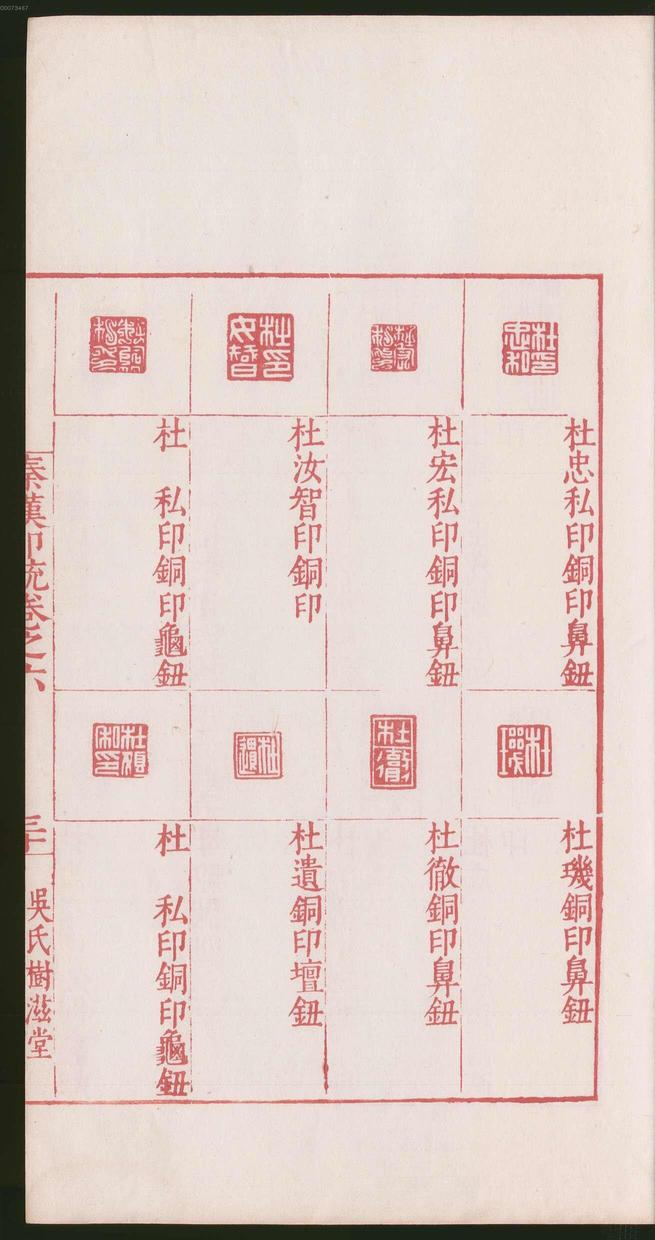 杜忠私印銅印鼻鈕
杜宏私印銅印鼻鈕
杜汝智印銅印
杜　私印銅印龜鈕
杜璣銅印鼻鈕
杜徹銅印鼻鈕
杜遺銅印壇鈕
杜　私印銅印龜鈕
秦漢印統卷之六
吳氏樹滋堂
00073467